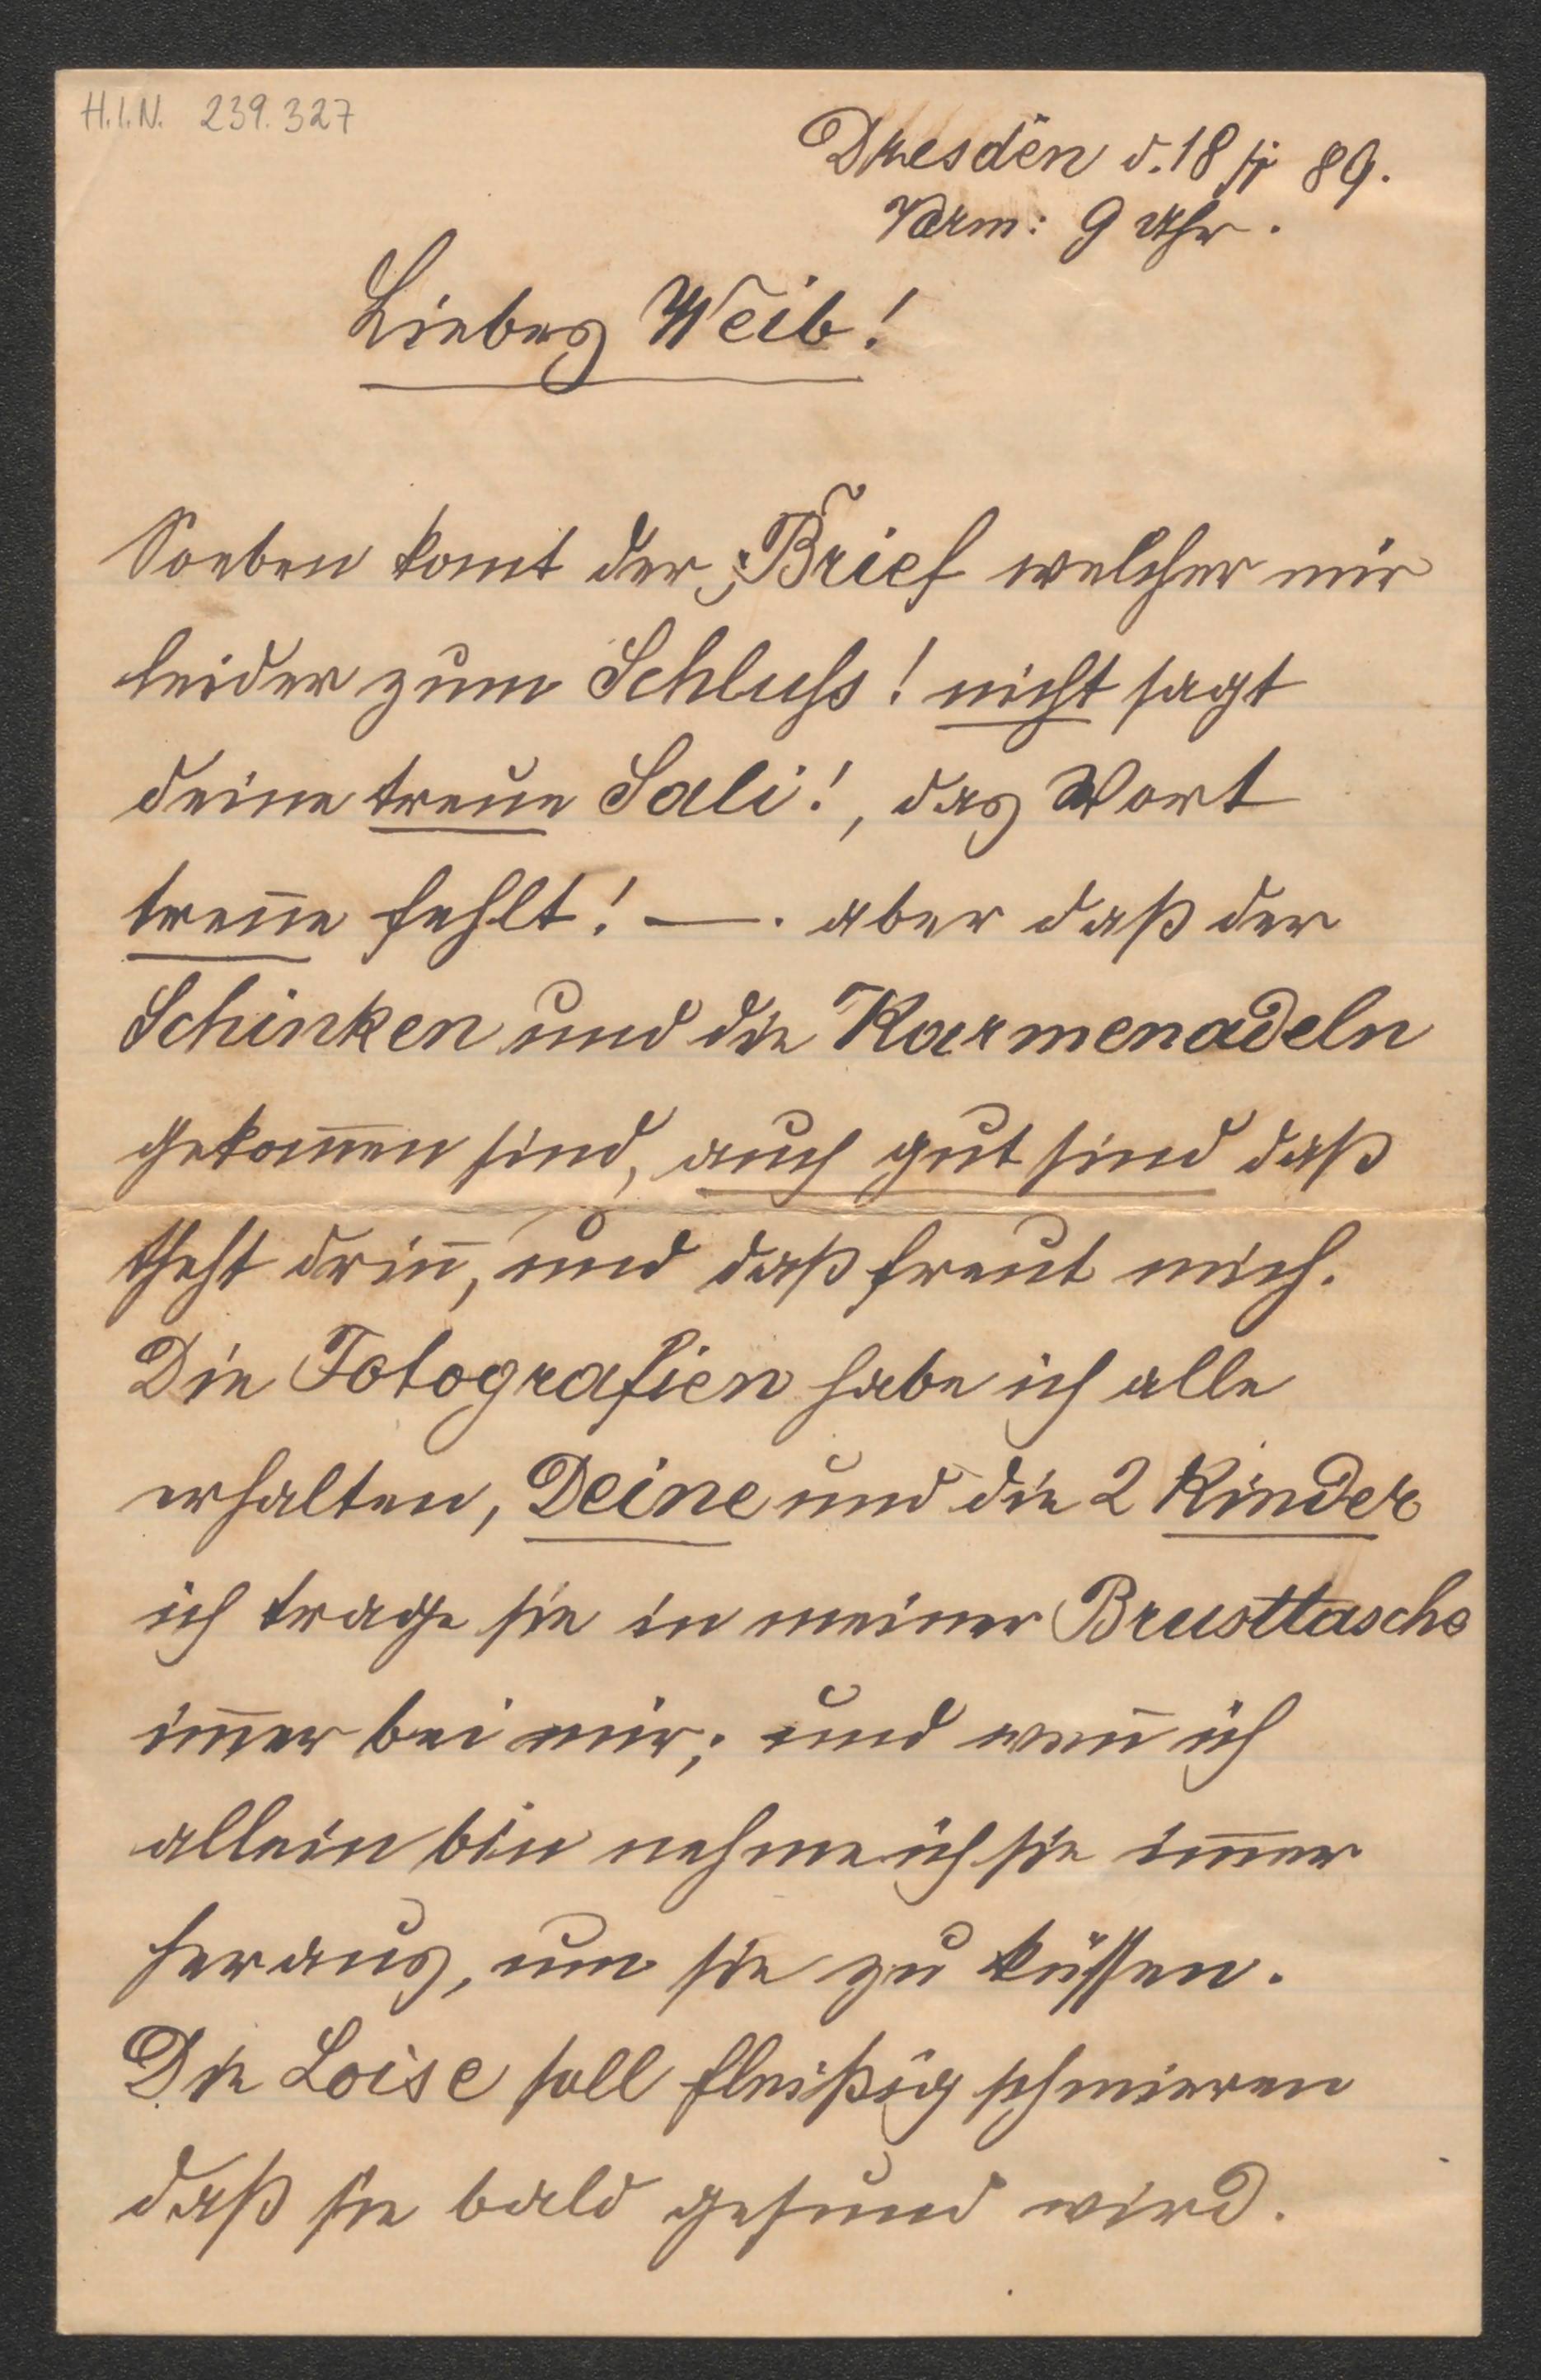 H.I.N. 239.327
Dresden d. 18 89.
Vorm: 9 Uhr.
Liebes Weib!
Soeben komt der Brief welcher mir
leider zum Schluss! nicht sagt
deine treue Sali!, das Wort
treue fehlt! —. aber daß der
Schinken und die Karmenadeln
gekom̄en sind, auch gut sind daß
steht drin̄, und daß freut mich.
Die Fotografien habe ich alle
erhalten, Deine und die 2 Kinder
ich trage sie in meiner Brusttasche
im̄er bei mir; und wen̄ ich
allein bin nehme ich sie im̄er
heraus, um sie zu küssen.
Die Loise soll fleißig schmieren
daß sie bald gesund wird.